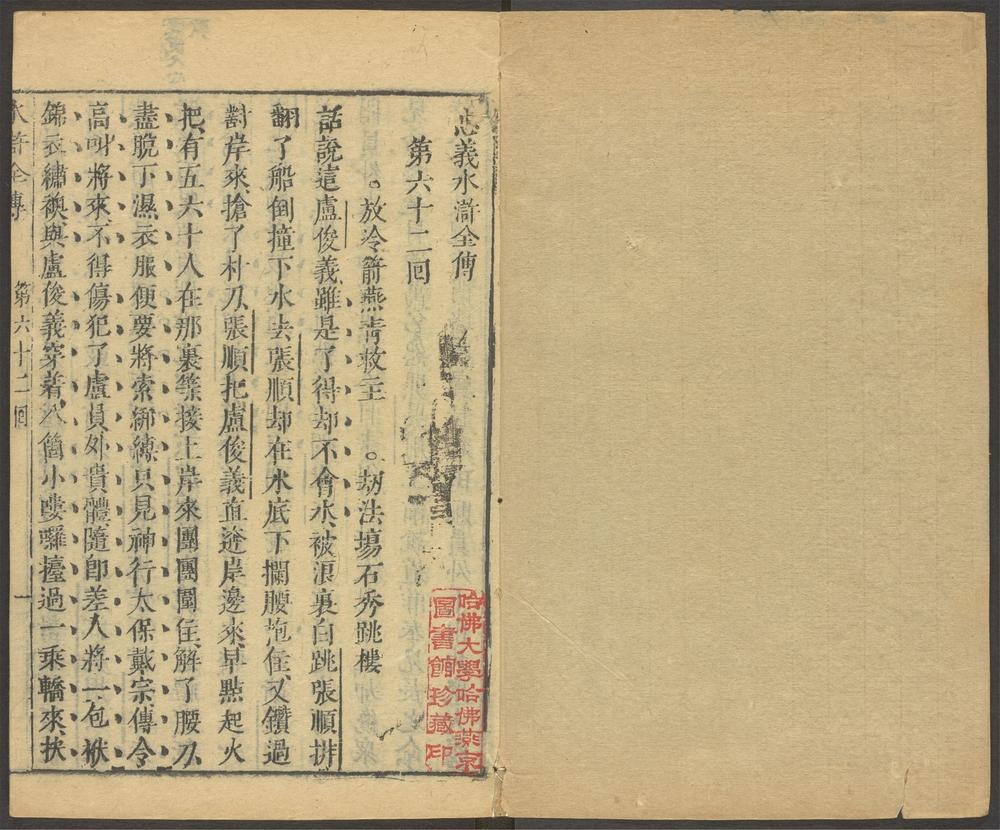 忠義水滸全傳
第六十二回
放冷箭燕青救主 劫法塲石秀跳樓
話說這盧俊義雖是了得却不會水被浪裏白跳張順排
翻了船倒撞下水去張順却在水底下攔腰抱住又鑽過
對岸來搶了朴刀張順把盧俊義直逩岸邊來早點起火
把有五六十人在那裏等接上岸來團團圍住解了腰刀
盡脫下濕衣服便要將索綁縛只見神行太保戴宗傳令
高叫將來不得傷犯了盧員外貴體隨卽差人將一包袱
錦衣繡襖與盧俊義穿着八箇小嘍囉擡過一乘轎來扶
水滸全傳 第六十二回 一
哈佛大學哈佛燕京
圖書館珍藏印